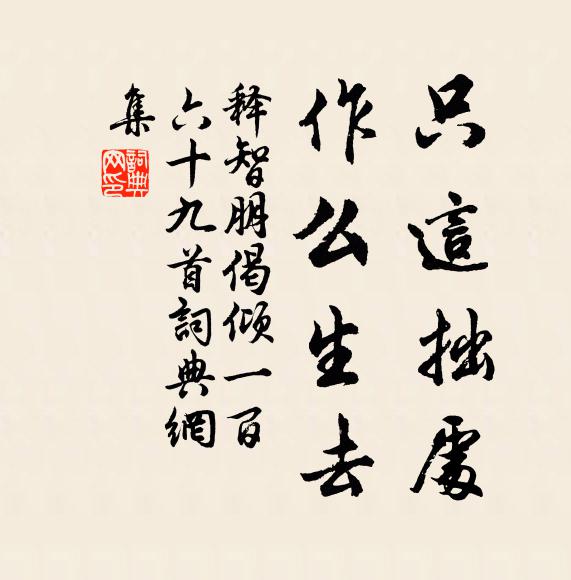 只這拙處
作么生去
释智朋偈傾一百
六十九首詞典網
集
詞典网印